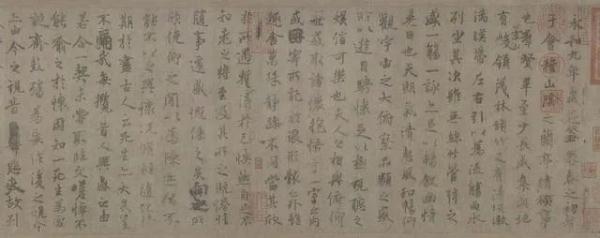 永和九年歲在癸丑暮春之初會
于會稽山陰之蘭亭脩稧事
也群賢畢至少長咸集此地
有崇山峻領茂林脩竹又有清流激
湍暎帶左右引以為流觴曲水
列坐其次雖無絲竹管弦之
盛一觴一詠亦足以暢敘幽情
是日也天朗氣清惠風和暢仰
觀宇宙之大俯察品類之盛
所以遊目騁懷足以極視聽之
娛信可樂也夫人之相與俯仰
一世或取諸懷抱悟言一室之內
或因寄所託放浪形骸之外雖
趣舍萬殊靜躁不同當其欣
於所遇暫得於己快然自足不
知老之將至及其所之既惓情
隨事遷感慨係之矣向之所欣
俛仰之閒以為陳迹猶不
能不以之興懷況脩短隨化終
期於盡古人云死生亦大矣豈
不痛哉每攬昔人興感之由
若合一契未嘗不臨文嗟悼不
能喻之於懷固知一死生為虛
誕齊彭殤為妄作後之視今
亦由今之視昔悲夫故列